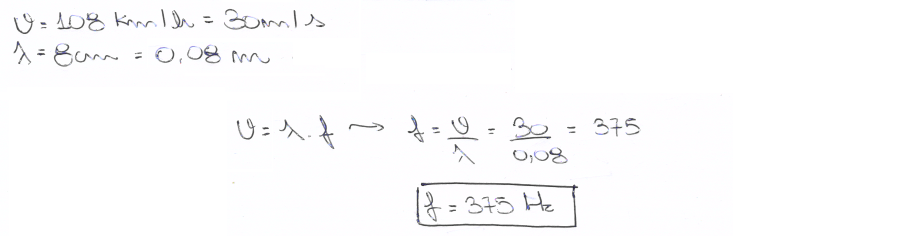 v = 108 km/h = 30 m/s
λ = 8cm = 0,08 m
v = λ . f → f = v/λ = 30/0,08 = 375
f = 375 Hz